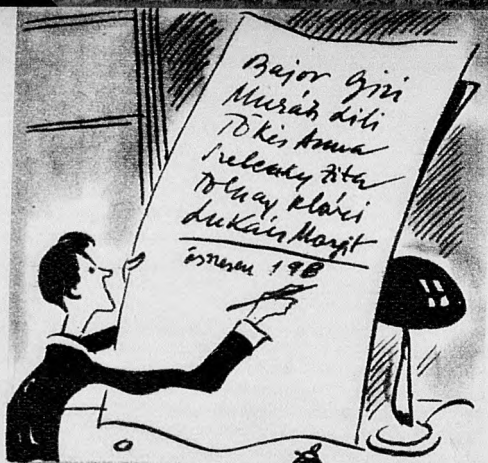 Bajor Gizi
Muráti Lili
Tőkés Anna
Szeleczky Zita
Tolnay Klári
Lukács Margit
összesen